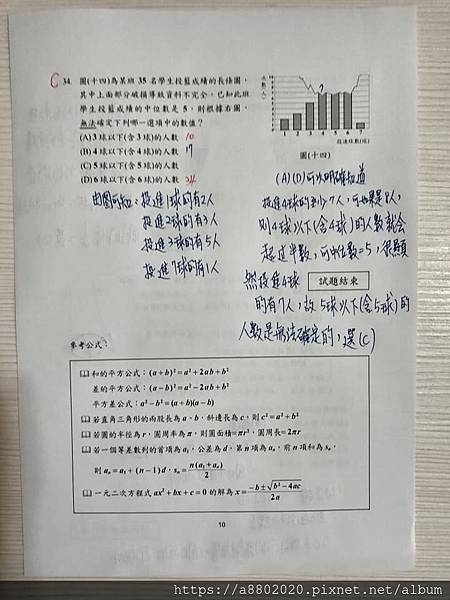 C 34. 圖(十四)為某班 35 名學生投籃成績的長條圖，
其中上面部分破損導致資料不完全，已知此班
學生投籃成績的中位數是 5，則根據右圖，
無法確定下列哪一選項中的數值？
(A) 3 球以下(含 3 球)的人數 10
(B) 4 球以下(含 4 球)的人數 17
(C) 5 球以下(含 5 球)的人數
(D) 6 球以下(含 6 球)的人數 34
次數(人)
?
1 2 3 4 5 6 7
投進球數(球)
圖(十四)
由圖可知：投進1球的有2人
投進2球的有3人
投進3球的有5人
投進7球的有1人
(A)(D)可以明確知道
投進4球的至少7人，可如果是8人，
則4球以下(含4球)的人數就會
超過半數，可中位數=5，很顯
然投進4球
的有7人，故5球以下(含5球)的
人數是無法確定的，選(C)
試題結束
參考公式：
和的平方公式：(a+b)²=a²+2ab+b²
差的平方公式：(a-b)²=a²-2ab+b²
平方差公式：a²-b²=(a+b)(a-b)
若直角三角形的兩股長為 a、b，斜邊長為 c，則 c²=a²+b²
若圓的半徑為 r，圓周率為 π，則圓面積=πr²，圓周長=2πr
若一個等差數列的首項為 a₁，公差為 d，第 n 項為 aₙ，前 n 項和為 sₙ，
則 aₙ=a₁+(n-1)d，sₙ=n(a₁+aₙ)/2
一元二次方程式 ax²+bx+c=0 的解為 x=(-b±√(b²-4ac))/2a
10
https://a8802020.pixnet.net/album